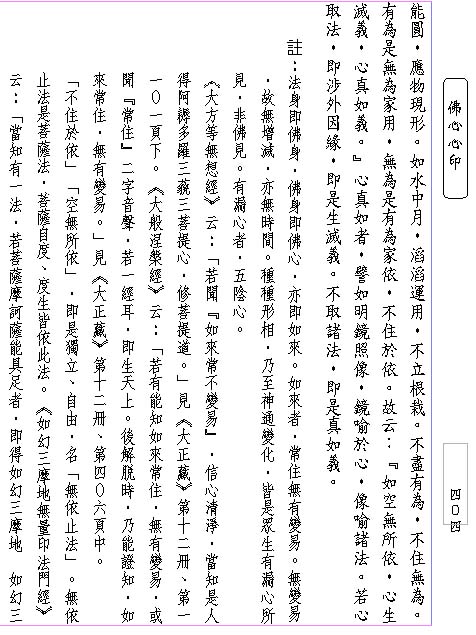 佛心心印
四０四
能圓，應物現形。如水中月，滔滔運用，不立根栽。不盡有為，不住無為。
有為是無為家用，無為是有為家依，不住於依。故云：『如空無所依，心生
滅義，心真如義。』心真如者，譬如明鏡照像，鏡喻於心，像喻諸法。若心
取法，即涉外因緣，即是生滅義。不取諸法，即是真如義。
註：法身即佛身，佛身即佛心，亦即如來。如來者，常住無有變易。無變易
，故無增減，亦無時間。種種形相，乃至神通變化，皆是眾生有漏心所
見，非佛見。有漏心者，五陰心。
《大方等無想經》云：「若聞『如來常不變易』，信心清淨，當知是人
得阿耨多羅三藐三菩提心，修菩提道。」見《大正藏》第十二冊、第一
一０一頁下。《大般涅槃經》云：「若有能知如來常住，無有變易，或
聞『常住』二字音聲，若一經耳，即生天上。後解脫時，乃能證知，如
來常住，無有變易。」見《大正藏》第十二冊、第四０六頁中。
「不住於依」「空無所依」，即是獨立、自由，名「無依止法」。無依
止法是菩薩法，菩薩自度、度生皆依此法。《如幻三摩地無量印法門經》
云：「當知有一法，若菩薩摩訶薩能具足者，即得如幻三摩地　如幻三